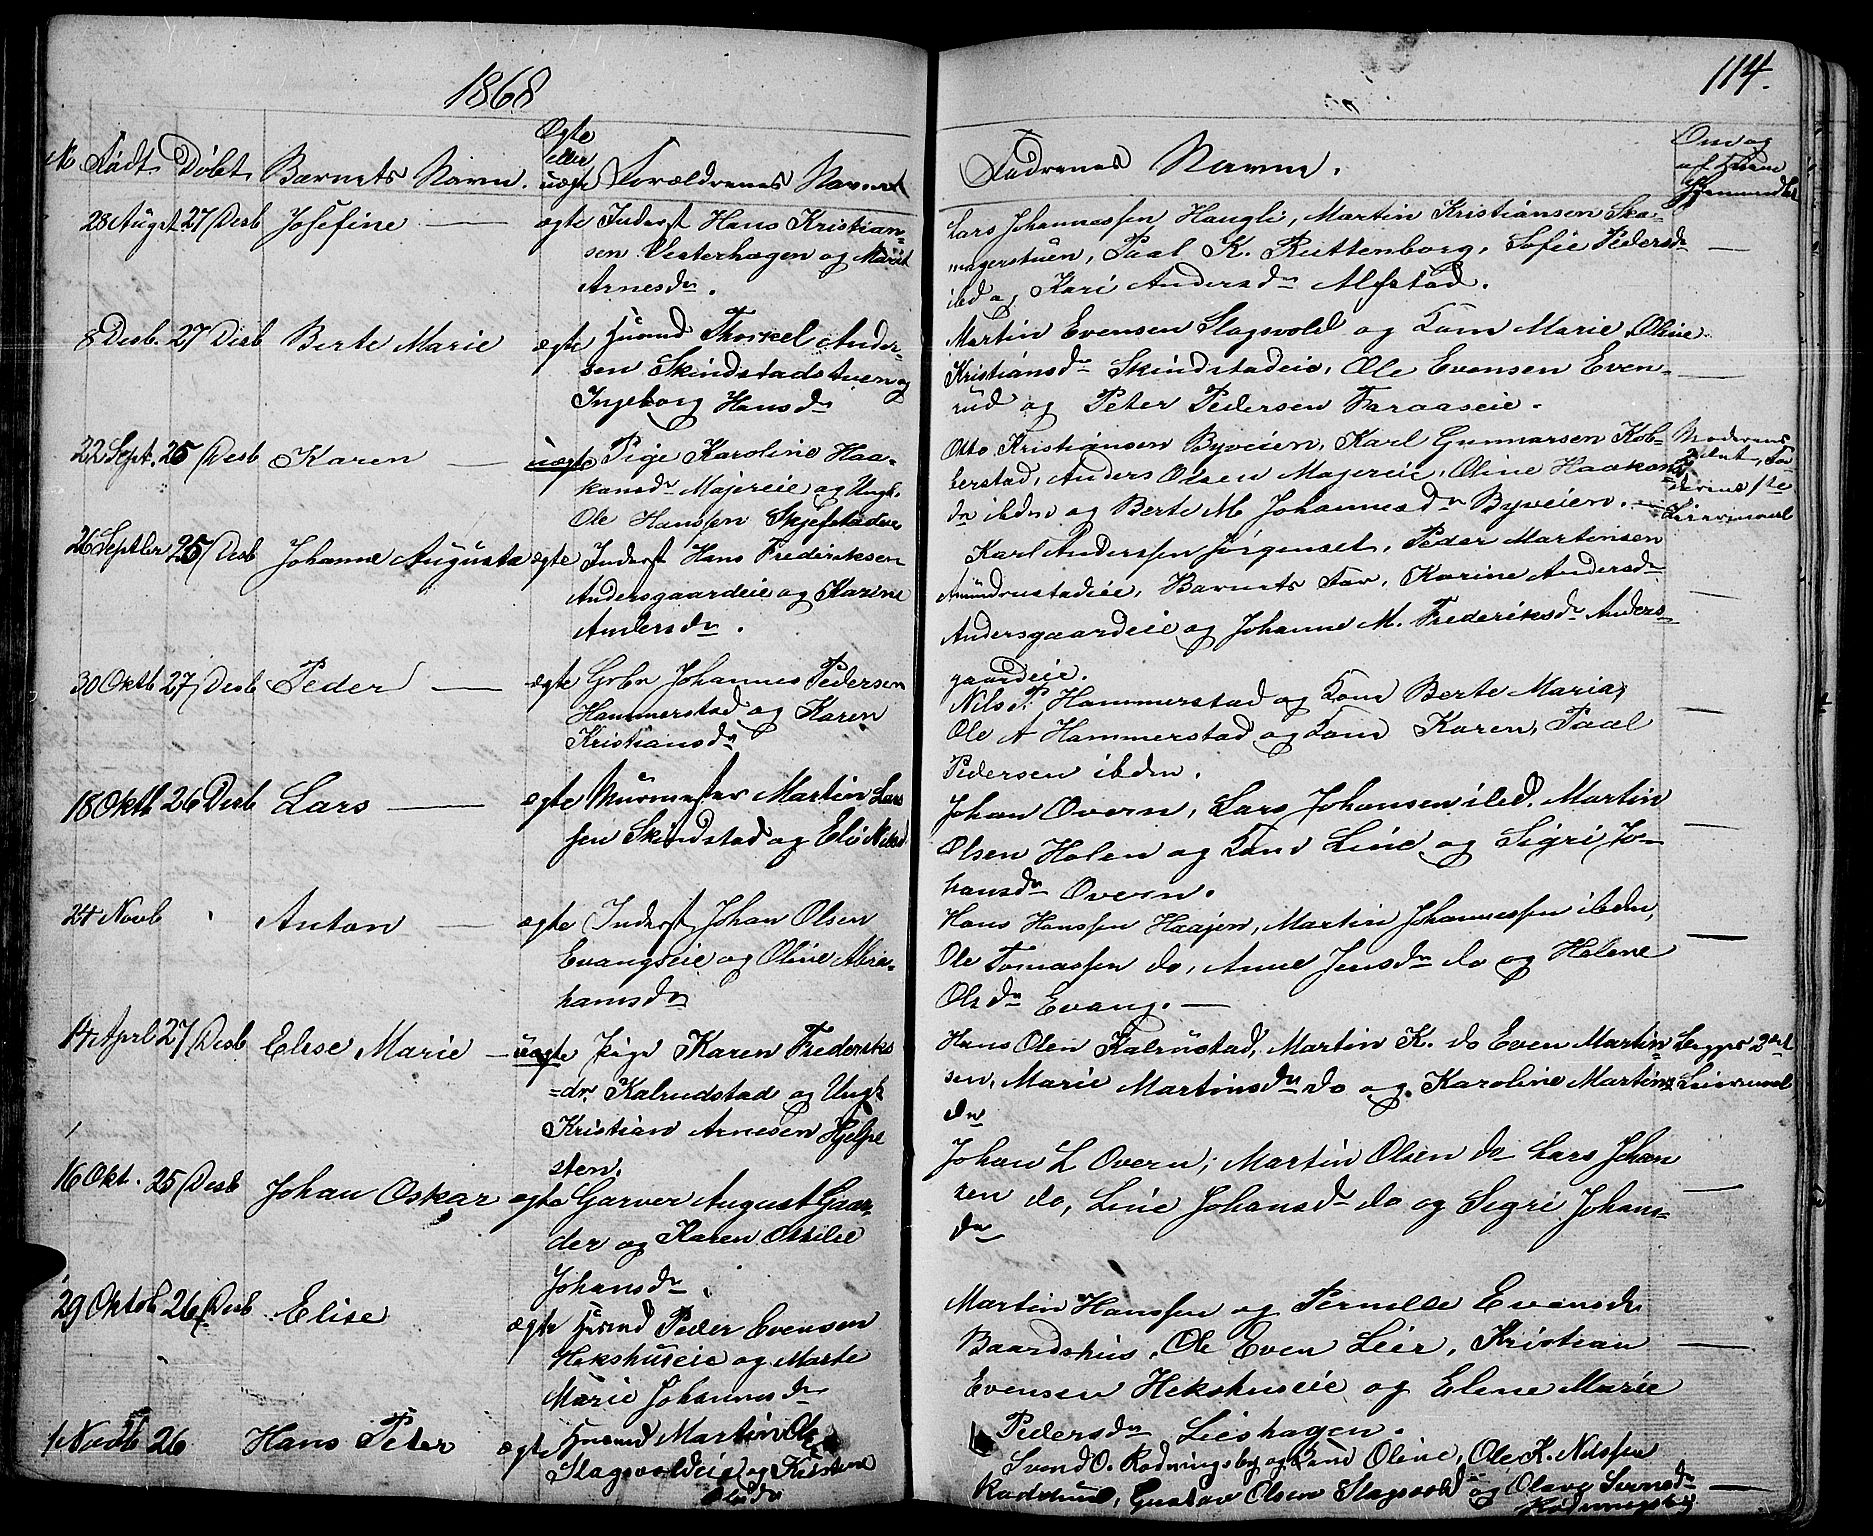 1868
114.
Født Døbt Barnets Navn. Ægte eller uægte Forældrenes Navne
Fadrenes Navne.
28 Augst 27 Desb Josefine — ægte Inderst Hans Kristian-
sen Vesterhagen og Marit
Arnesdr.
Lars Johannessen Haugli, Martin Kristiansen Ska-
magerstuen, Paal K. Ruttenborg, Sofie Pedersdr —
ibd og Kari Andersdr Alfstad.
8 Desb. 27 Desb Berte Marie ægte Husmd Thorkel Ander-
sen Skindstadstuen og
Ingeborg Hansdr
Martin Evensen Slagsvold og Kone Marie, Oline
Kristiansdr Skindstadeie, Ole Evensen Even- —
rud og Peter Pedersen Faraaseie.
22 Sept. 25 Desb Karen — uægte Pige Karoline Haa-
kansdr Majereie og Ungk.
Ole Hanssen Skjefstadeie
Otto Kristiansen Byveien, Karl Gunnarsen Kol-
berstad, Anders Olsen Majereie, Oline Haakons-
dr ibdm og Berte M. Johannesdr Byveien. —
Moderens
2det, Fa-
derens 1ste
Leiermaal
26 Septbr 25 Desb Johanne Augusta ægte Inderst Hans Frederiksen
Andersgaardeie og Karine
Andersdr.
Karl Anderssen Jørgenset, Peder Martinsen
Amundrustadeie, Barnets Far, Karine Andersdr —
Andersgaardeie og Johanne M. Frederiksdr Anders-
gaardeie.
30 Oktb 27 Desb Peder — ægte Grbr Johannes Pedersen
Hammerstad og Karen
Kristiansdr
Nils P. Hammerstad og Kone Berte Maria,
Ole A Hammerstad og Kone Karen, Paal —
Pedersen ibdm.
18 Oktb 26 Desb Lars — ægte Murmester Martin Lars
sen Skindstad og Eli Nilsd
Johan Overn, Lars Johansen ibd. Martin
Olsen Holen og Kone Line og Sigri Jo- —
hansdr Overn.
24 Novb Anton — ægte Inderst Johan Olsen
Evangseie og Oline Abra-
hamsdr
Hans Hanssen Haajen, Martin Johannessen ibdm,
Ole Tomassen do, Anne Jensdr do og Helene —
Olsdr Evang. —
14 April 27 Desb Elise Marie — uægte Pige Karen Frederiks
=dr. Kalrudstad og Ungk
Kristian Arnesen Hjelpe
sten.
Hans Olsen Kalrustad, Martin K. do Even Martin-
sen, Marie Martinsdr do og Karoline Martins
dr
Begges 2det
Leiermaal
16 Okt. 25 Desb Johan Oskar ægte Garver August Gaar-
der og Karen Otilie
Johansdr.
Johan L Overn, Martin Olsen do Lars Johan
sen do, Line Johansdr do og Sigri Johans- —
dr
29 Oktob 26 Desb Elise ægte Husmd Peder Evensen
Hekshuseie og Marte
Marie Johannesdr
Martin Hanssen og Pernille Evensdr
Baardshus, Ole Even Lier, Kristian —
Evensen Hekshuseie og Elene Marie
Pedersdr Lieshagen.
1 Novb 26 Hans Peter ægte Husmd Martin
Slagsvoldeie og
Olsdr
Svend O. Rodningsby og Kone Oline, Ole K. Nilssen
Gustav Olsen Slagsvold og Olave Svensdr —
Rodningsby